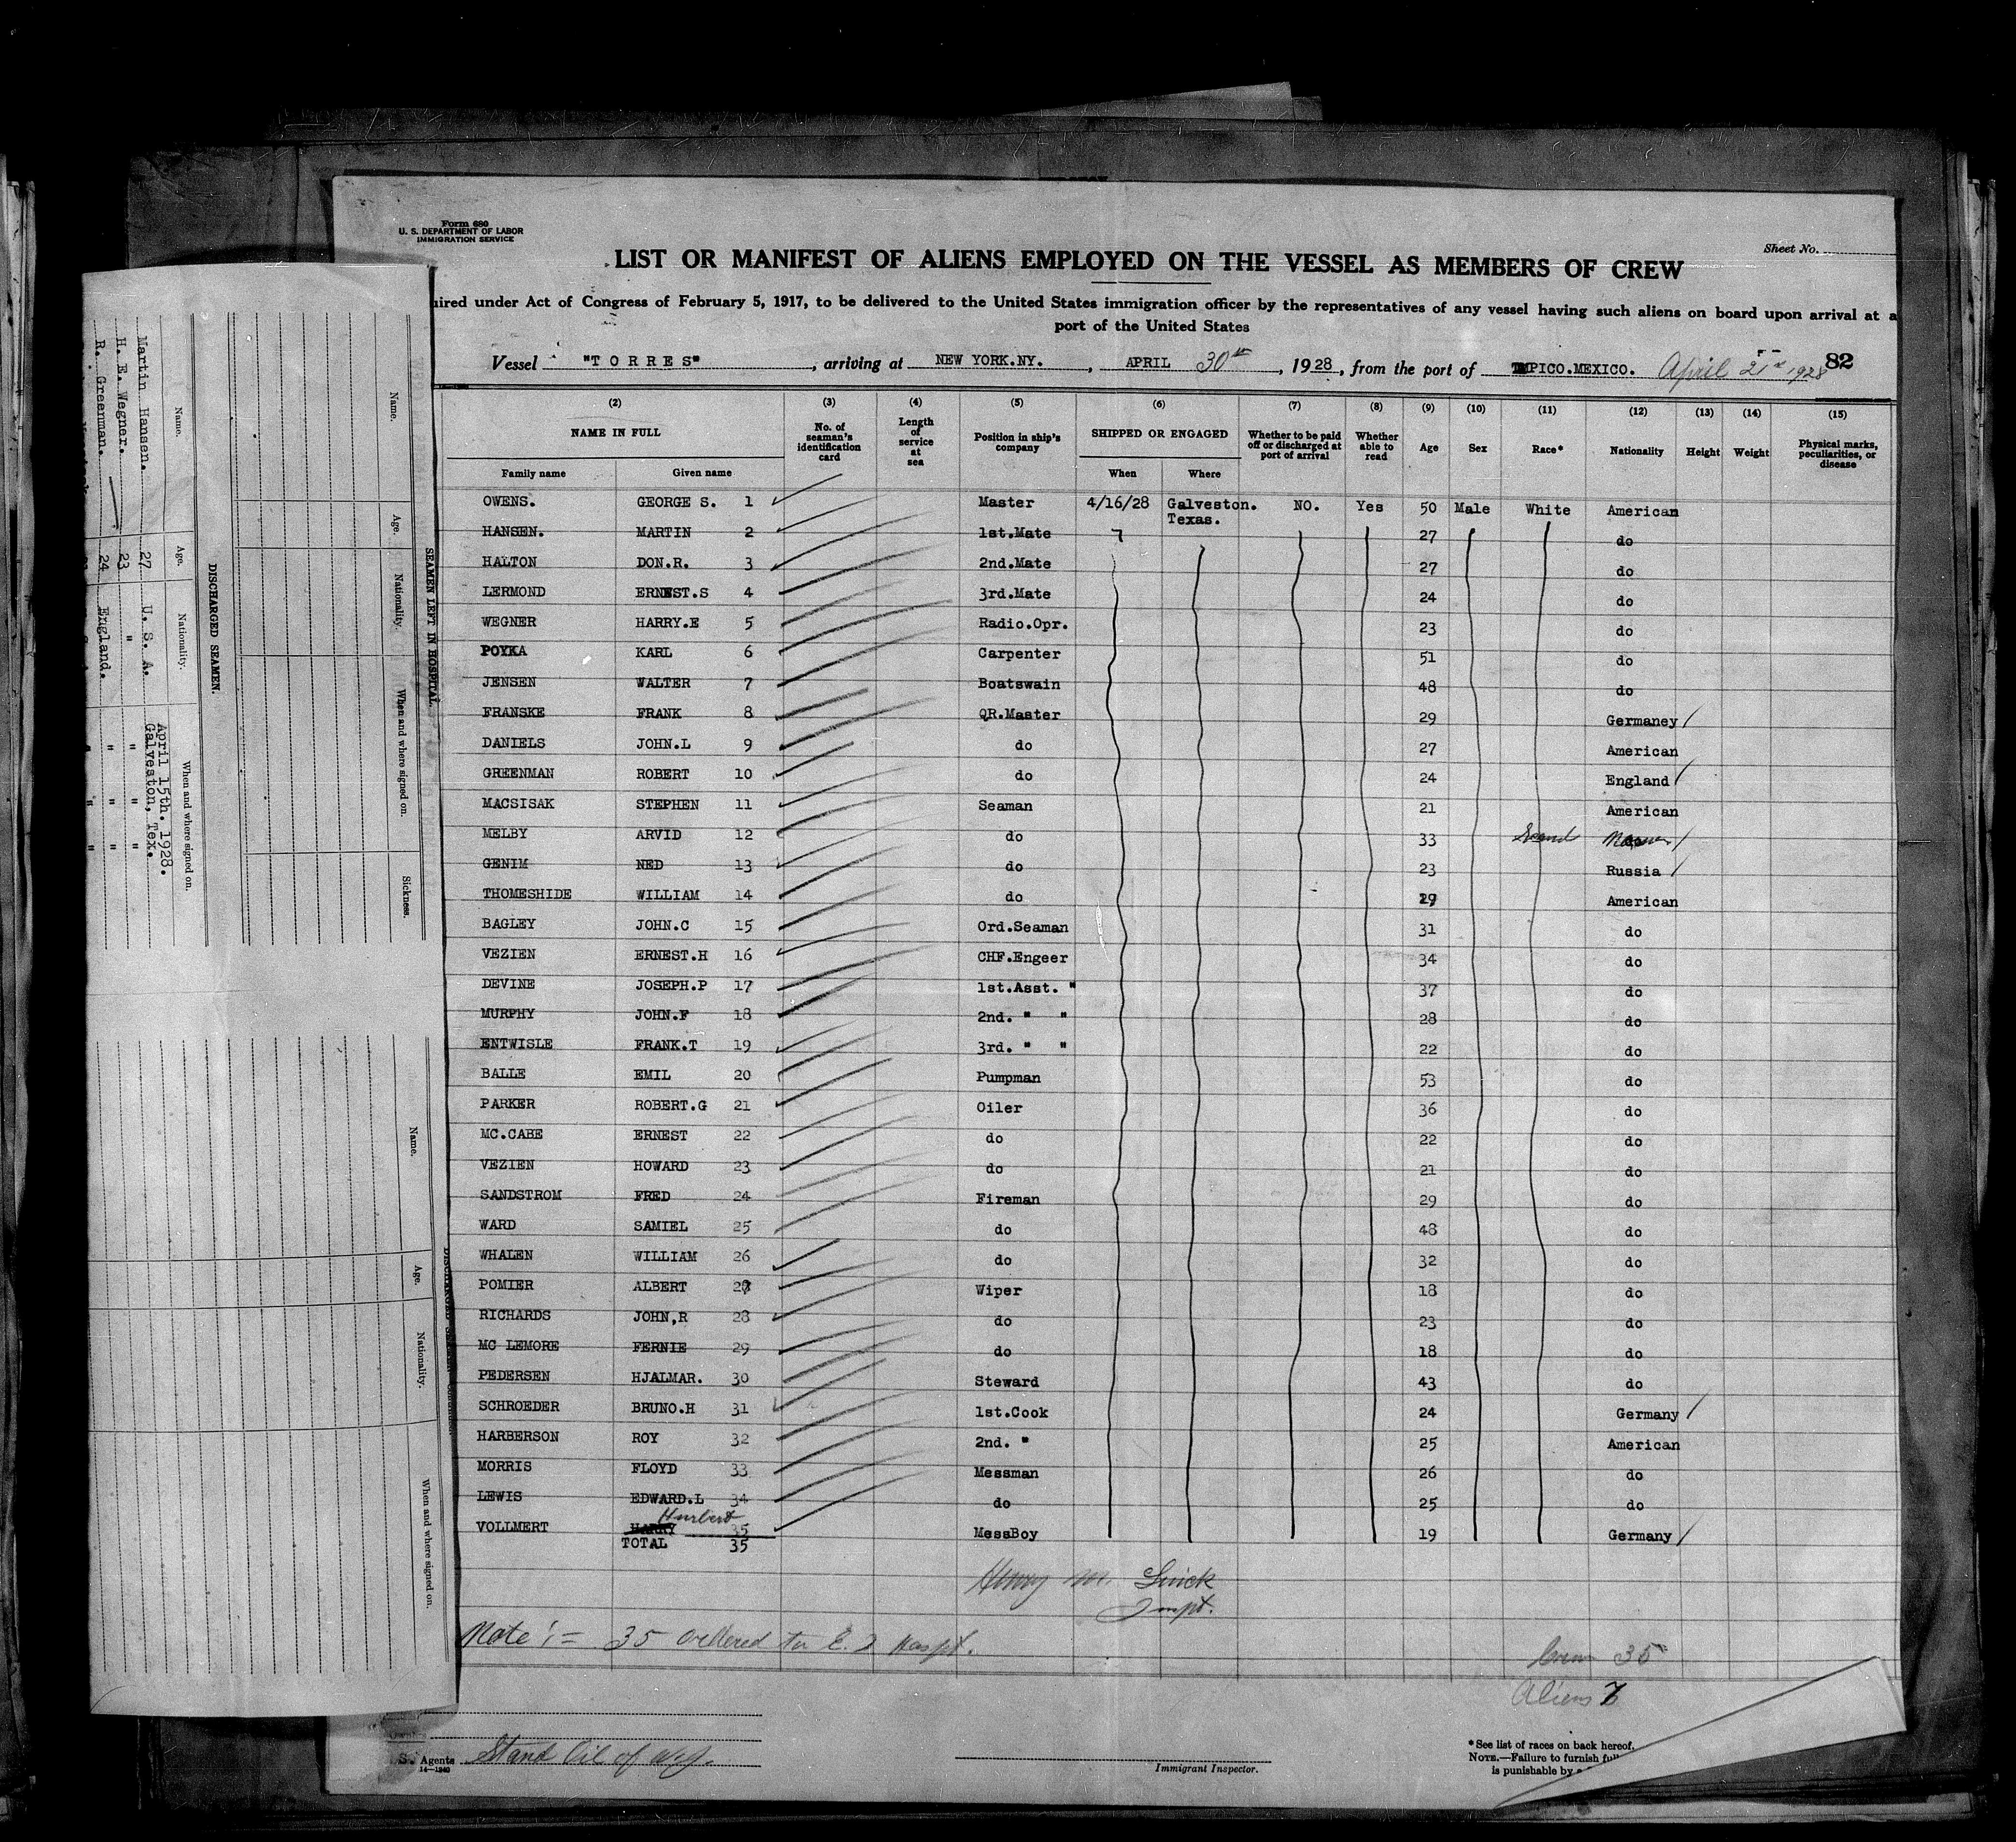 Form 680
U. S. DEPARTMENT OF LABOR
IMMIGRATION SERVICE
Sheet No.
LIST OR MANIFEST OF ALIENS EMPLOYED ON THE VESSEL AS MEMBERS OF CREW
uired under Act of Congress of February 5, 1917, to be delivered to the United States immigration officer by the representatives of any vessel having such aliens on board upon arrival at a
port of the United States
Vessel "TORRES", arriving at NEW YORK.NY., APRIL 30th, 1928, from the port of TMPICO.MEXICO. April 21st 1928 82
(2) (3) (4) (5) (6) (7) (8) (9) (10) (11) (12) (13) (14) (15)
NAME IN FULL No. of seaman's identification card Length of service at sea Position in ship's company SHIPPED OR ENGAGED Whether to be paid off or discharged at port of arrival Whether able to read Age Sex Race* Nationality Height Weight Physical marks, peculiarities, or disease
Family name Given name When Where
OWENS. GEORGE S. 1 Master 4/16/28 Galveston. Texas. NO. Yes 50 Male White American
HANSEN. MARTIN 2 1st.Mate 27 do
HALTON DON.R. 3 2nd.Mate 27 do
LERMOND ERNEST.S 4 3rd.Mate 24 do
WEGNER HARRY.E 5 Radio.Opr. 23 do
POYKA KARL 6 Carpenter 51 do
JENSEN WALTER 7 Boatswain 48 do
FRANSKE FRANK 8 QR.Master 29 Germaney /
DANIELS JOHN.L 9 do 27 American
GREENMAN ROBERT 10 do 24 England /
MACSISAK STEPHEN 11 Seaman 21 American
MELBY ARVID 12 do 33 Scand /
GENIM NED 13 do 23 Russia /
THOMESHIDE WILLIAM 14 do 29 American
BAGLEY JOHN.C 15 Ord.Seaman 31 do
VEZIEN ERNEST.H 16 CHF.Engeer 34 do
DEVINE JOSEPH.P 17 1st.Asst. " 37 do
MURPHY JOHN.F 18 2nd. " " 28 do
ENTWISLE FRANK.T 19 3rd. " " 22 do
BALLE EMIL 20 Pumpman 53 do
PARKER ROBERT.G 21 Oiler 36 do
MC.CABE ERNEST 22 do 22 do
VEZIEN HOWARD 23 do 21 do
SANDSTROM FRED 24 Fireman 29 do
WARD SAMIEL 25 do 48 do
WHALEN WILLIAM 26 do 32 do
POMIER ALBERT 27 Wiper 18 do
RICHARDS JOHN,R 28 do 23 do
MC LEMORE FERNIE 29 do 18 do
PEDERSEN HJALMAR. 30 Steward 43 do
SCHROEDER BRUNO.H 31 1st.Cook 24 Germany /
HARBERSON ROY 32 2nd. " 25 American
MORRIS FLOYD 33 Messman 26 do
LEWIS EDWARD.L 34 do 25 do
Hurbert
VOLLMERT HARRY 35 MessBoy 19 Germany /
TOTAL 35
Henry M.
Inspt.
Note := 35 ordered to E. I Hospt.
Crew 35
Aliens 7
S. Agents Stand Oil of N.J.
14—1940
Immigrant Inspector.
*See list of races on back hereof.
NOTE.—Failure to furnish full
is punishable by a
SEAMEN LEFT IN HOSPITAL
Name. Age. Nationality. When and where signed on. Sickness.
DISCHARGED SEAMEN.
Name. Age. Nationality. When and where signed on.
Martin Hansen. 27 U. S. A. April 15th. 1928. Galveston, Tex.
H. E. Wegner. 23 " " "
R. Greenman. 24 England. " " "
Name. Age. Nationality. When and where signed on.